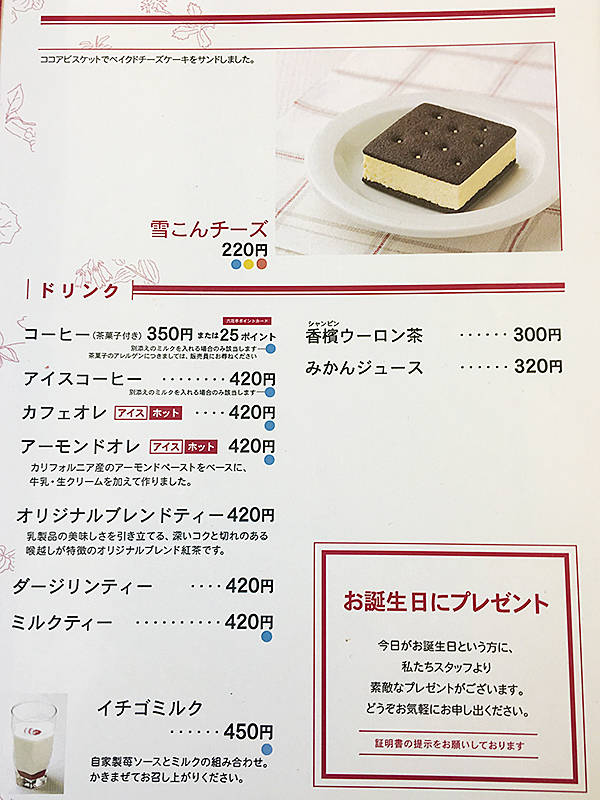 ココアビスケットでベイクドチーズケーキをサンドしました。
雪こんチーズ
220円
ドリンク
六花亭ポイントカード
コーヒー(茶菓子付き) 350円 または25ポイント
別添えのミルクを入れる場合のみ該当します
茶菓子のアレルゲンにつきましては、販売員にお尋ねください
アイスコーヒー ········ 420円
別添えのミルクを入れる場合のみ該当します
カフェオレ アイス ホット ···· 420円
アーモンドオレ アイス ホット 420円
カリフォルニア産のアーモンドペーストをベースに、
牛乳・生クリームを加えて作りました。
オリジナルブレンドティー 420円
乳製品の美味しさを引き立てる、深いコクと切れのある
喉越しが特徴のオリジナルブレンド紅茶です。
ダージリンティー ···· 420円
ミルクティー ·········· 420円
イチゴミルク
······ 450円
自家製苺ソースとミルクの組み合わせ。
かきまぜてお召し上がりください。
シャンピン
香檳ウーロン茶 ······ 300円
みかんジュース ······ 320円
お誕生日にプレゼント
今日がお誕生日という方に、
私たちスタッフより
素敵なプレゼントがございます。
どうぞお気軽にお申し出ください。
証明書の提示をお願いしております